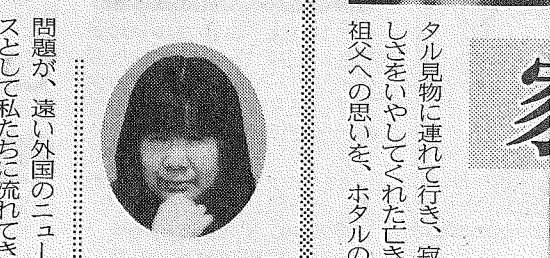 タル見物に連れて行き、寂
しさをいやしてくれた亡き
祖父への思いを、ホタルの
問題が、遠い外国のニュー
スとして私たちに流れてき